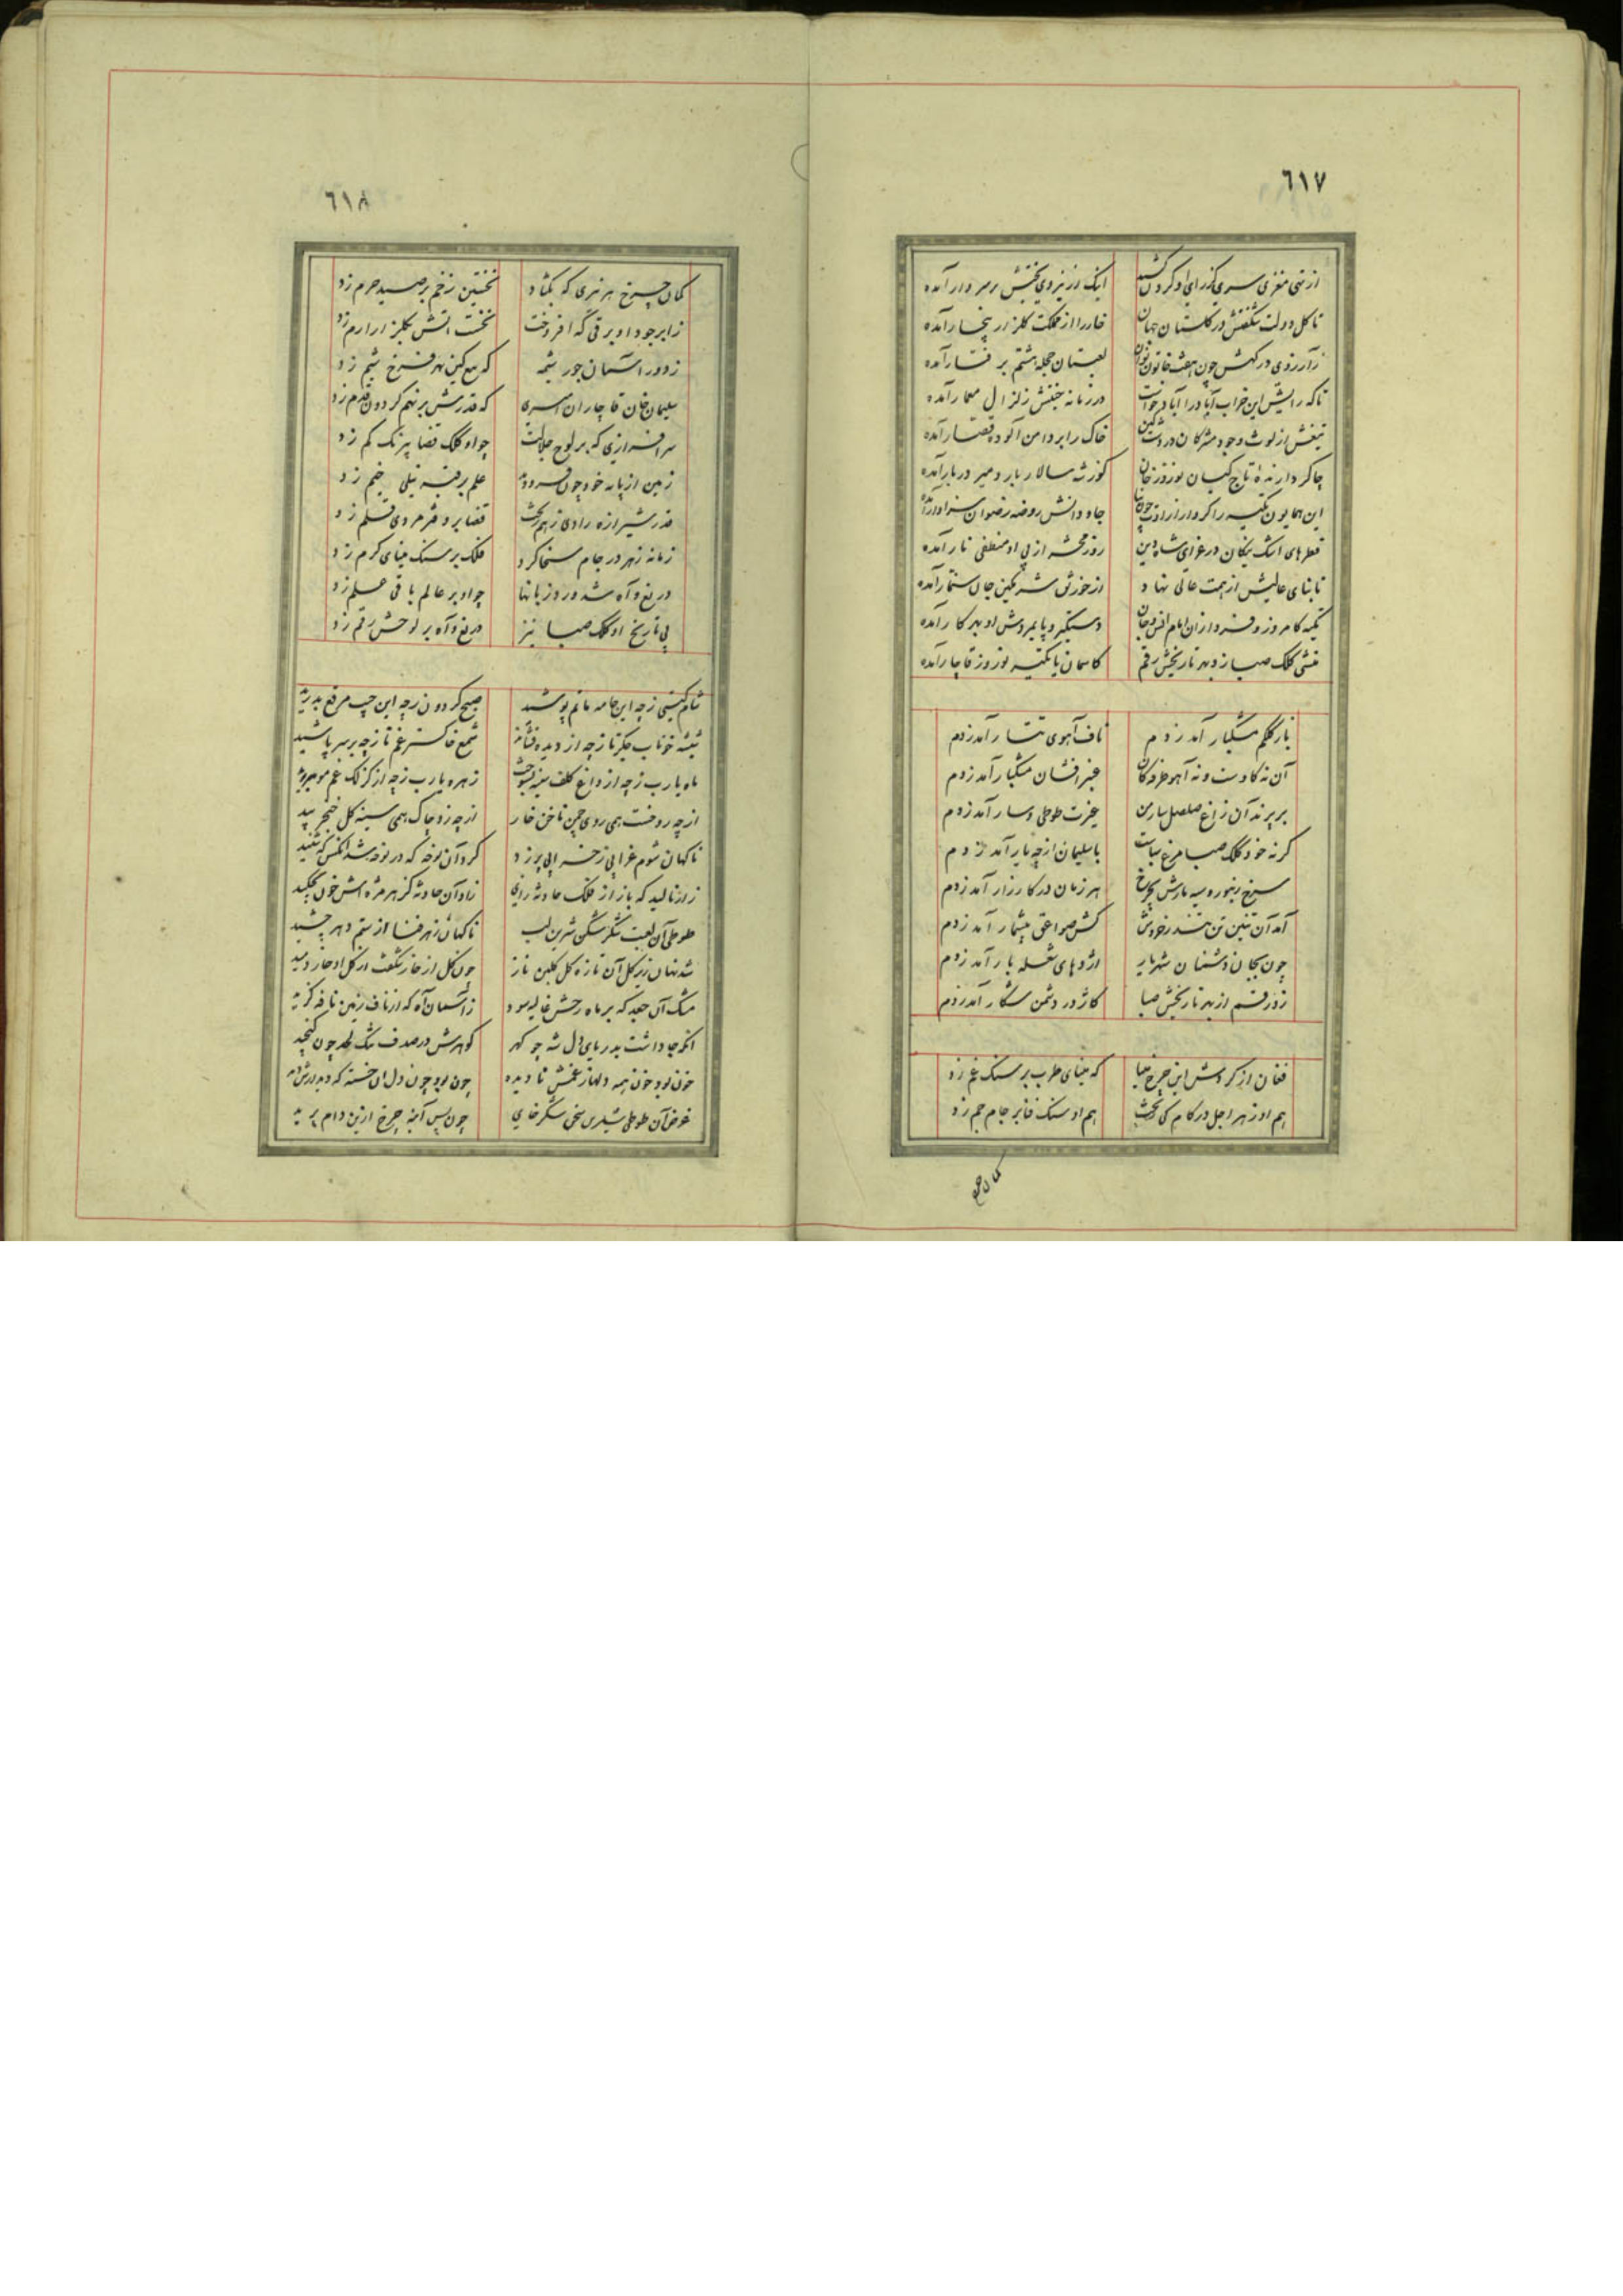 ٦١٧
از تهی مغزی سری کز رای او گردن کشید ایک از نیروی بختش بر سر دار آمده
تا گل دولت شکفتش در گلستان جهان خار را از مملکت گلزار پنجار آمده
زآرزوی درگهش چون هفت خاتون لعبتان حجله هشتم برفتار آمده
تا که رایش این خراب آباد را آباد خواست در زمانه جنبش زلزال معمار آمده
تیغش از لوث وجود مشرکان در دشت کین خاک را بر دامن آلوده قصار آمده
چاکر دارنده تاج کیان نوروز خان کوز شه سالار بار و میر دربار آمده
این همایون تکیه را کرد از ارادت جاودانش روضه رضوان سزاوار آمده
قطرهای اشک نیکان در عزای شاه دین روز محشر از پی او منطفی نار آمده
تا بنای عالیش از همت عالی نهاد از خورنق شرمگین جان سنمار آمده
تکیه کامروز و فردا زان امام انس و جان دستگیر و پایمردش او بهر کار آمده
منشی کلک صبا زد بهر تاریخش رقم کاسمان یا تکیه نوروز قاجار آمده
باز کلکم مشکبار آمد زدم ناف آهوی تتار آمد زدم
آن نه گاوست و نه آهو طرفه کان عنبر افشان مشکبار آمد زدم
بر پرند آن زاغ صلصل سار من غیرت طوطی و سار آمد زدم
گر نه خود کلک صبا مرغ سباست با سلیمان از چه یار آمد زدم
سرخ زنبوره سیه مارش بچرخ هر زمان در کارزار آمد زدم
آمد آن تنین تن تندر خروش کش صواعق بیشمار آمد زدم
چون بجان دشمنان شهریار اژدهای شعله بار آمد زدم
زد رقم از بهر تاریخش صبا کاژدر دشمن شکار آمد زدم
فغان از گردش این چرخ مینا که مینای طرب بر سنگ غم زد
هم او زهر اجل در کام کی ریخت هم او سنگ فنا بر جام جم زد
کمان چرخ
٦١٨
کمان چرخ هر تیری که بگشاد نخستین زخم بر صید حرم زد
ز ابر جود او برقی که افروخت نخست آتش بگلزار ارم زد
ز دور آسمان جور پیشه که تیغ کین بهر فرخ شیم زد
سلیمان خان قاجار آن امیری که قدرش بر نهم گردون قدم زد
سرافرازی که بر لوح جلالت چو او کلک قضا نیرنگ کم زد
زمین از پایه خود چون فرود دید علم بر قبه نیلی خیم زد
قدر شیرازه رادی ز هم ریخت قضا بر دفتر مردی قلم زد
زمانه زهر در جام سخا کرد فلک بر سنگ مینای کرم زد
دریغ و آه شد ورد زبانها چو او بر عالم باقی علم زد
پی تاریخ او کلک صبا نیز دریغ و آه بر لوحش رقم زد
شام گیتی ز چه این جامه ماتم پوشید صبح گردون ز چه این جیب مرقع بدرید
شیشه خوناب جگر تا ز چه از دیده فشاند شمع خاکستر غم تا ز چه بر سر پاشید
ماه یارب ز چه از داغ کلف سینه بسوخت زهره یارب ز چه از گزلک غم مو ببرید
از چه رو خست همی روی چمن ناخن خار از چه زد چاک همی سینه گل خنجر بید
ناگهان شوم غرابی ز خرابی پر زد کرد آن نوحه که در نوحه شد آنکس که شنید
زار نالید که باز از فلک حادثه زای زاد آن حادثه کز هر مژه اش خون بچکید
طوطی آن لعبت شکر شکن شیرین لب ناگهان زهر فنا از ستم دهر چشید
شد نهان زیر گل آن تازه گل گلبن ناز چون گل از خار شکفت از گل او خار دمید
مشک آن جعد که بر ماه رخش غالیه سود ز آسمان آه که از ناف زمین نافه گزید
آنکه جا داشت بدریای دل شه چو گهر گوهرش در صدف تنگ لحد چون گنجید
خون بود خون همه دلها ز غمش تا دیده چون بود چون دل آن خسته که دیدار ش دید
غرض آن طوطی شیرین سخن شکر خای چون پس آینه چرخ ازین دام پرید